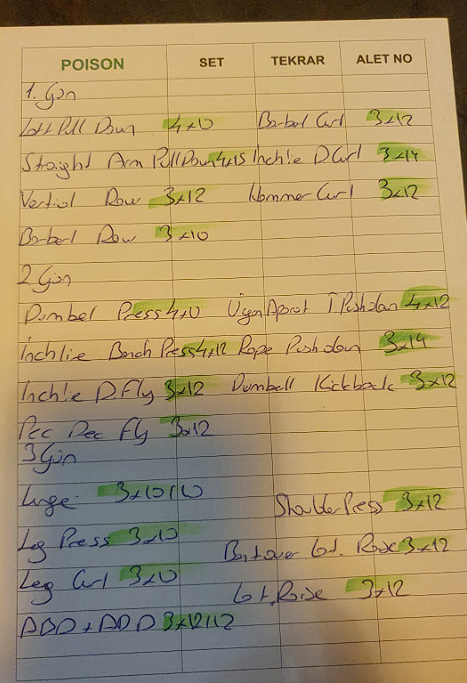 POISON SET TEKRAR ALET NO
1. Gün
Latt Pull Down 4x10 Barbel Curl 3x12
Straight Arm Pull Down 4x15 Inchlie D.Curl 3x14
Vertial Row 3x12 Hammer Curl 3x12
Barbel Row 3x10
2 Gün
Dumbel Press 4x10 T. Pushdan 4x12
İnchlie Bench Press 4x12 Rope Pushdan 3x14
Inchlie D Fly 3x12 Dumbell Kickback 3x12
Pec Dec Fly 3x12
3 Gün
Lunge 3x10/10 Shoulder Press 3x12
Leg Press 3x10 Bentover Lat. Raise 3x12
Leg Curl 3x10 Lat. Raise 3x12
ABD + ADD 3x12/12